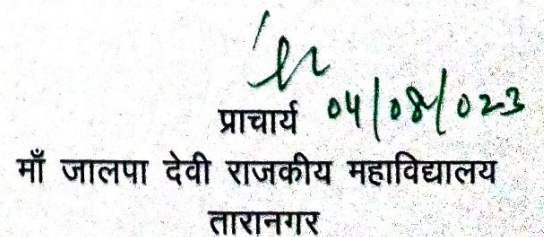 प्राचार्य 04/08/023
माँ जालपा देवी राजकीय महाविद्यालय
तारानगर